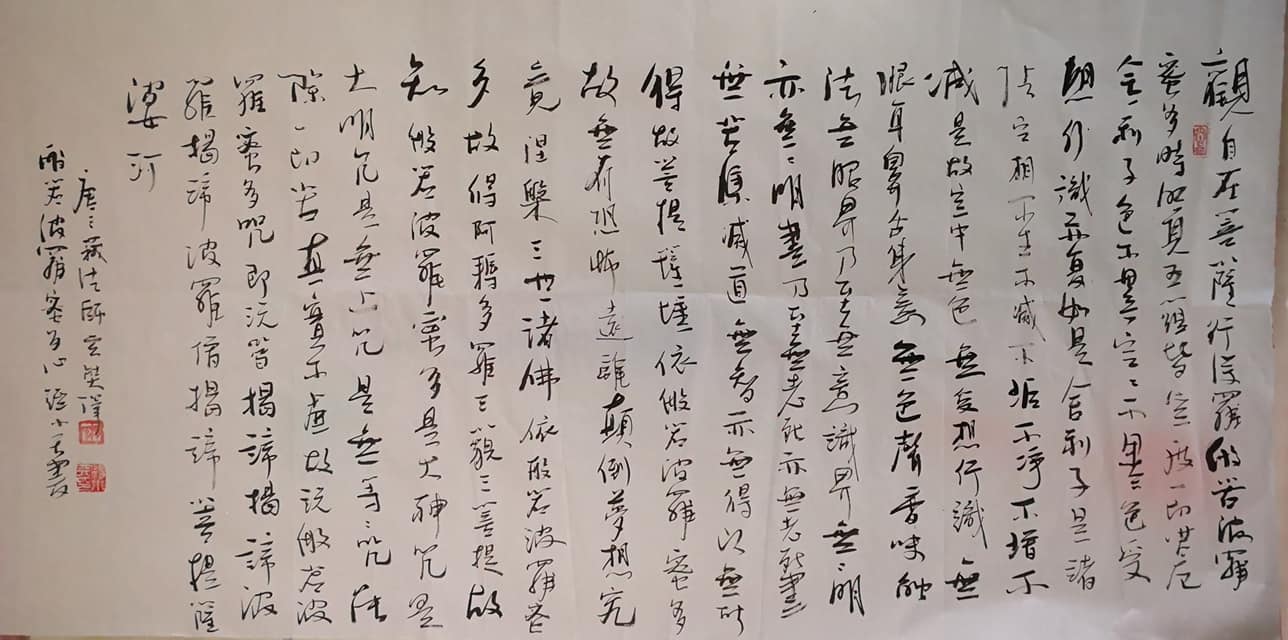 觀自在菩薩行深羅般若波羅
蜜多時照見五蘊皆空度一切苦厄
舍利子色不異空空不異色受
想行識亦復如是舍利子是諸
法空相不生不滅不垢不淨不增不
減是故空中無色無受想行識無
眼耳鼻舌身意無色聲香味觸
法無眼界乃至無意識界無無明
亦無無明盡乃至無老死亦無老死盡
無苦集滅道無智亦無得以無所
得故菩提薩埵依般若波羅蜜多
故無有恐怖遠離顛倒夢想究
竟涅槃三世諸佛依般若波羅蜜
多故得阿耨多羅三藐三菩提故
知般若波羅蜜多是大神咒是
大明咒是無上咒是無等等咒能
除一切苦真實不虛故說般若波
羅蜜多咒即說咒曰揭諦揭諦波
羅揭諦波羅僧揭諦菩提薩
婆訶
唐三藏法師玄奘譯
般若波羅蜜多心經